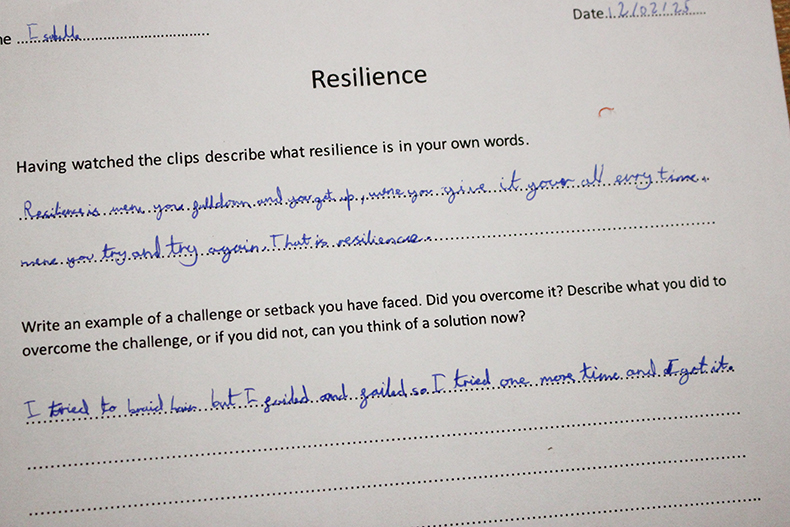 ne Isabella
Date 12/02/25
Resilience
Having watched the clips describe what resilience is in your own words.
Resilience is were you falldown and you get up, were you give it your all every time.
were you try and try again. That is resilience.
Write an example of a challenge or setback you have faced. Did you overcome it? Describe what you did to
overcome the challenge, or if you did not, can you think of a solution now?
I tried to braid hair but I failed and failed so I tried one more time and I got it.